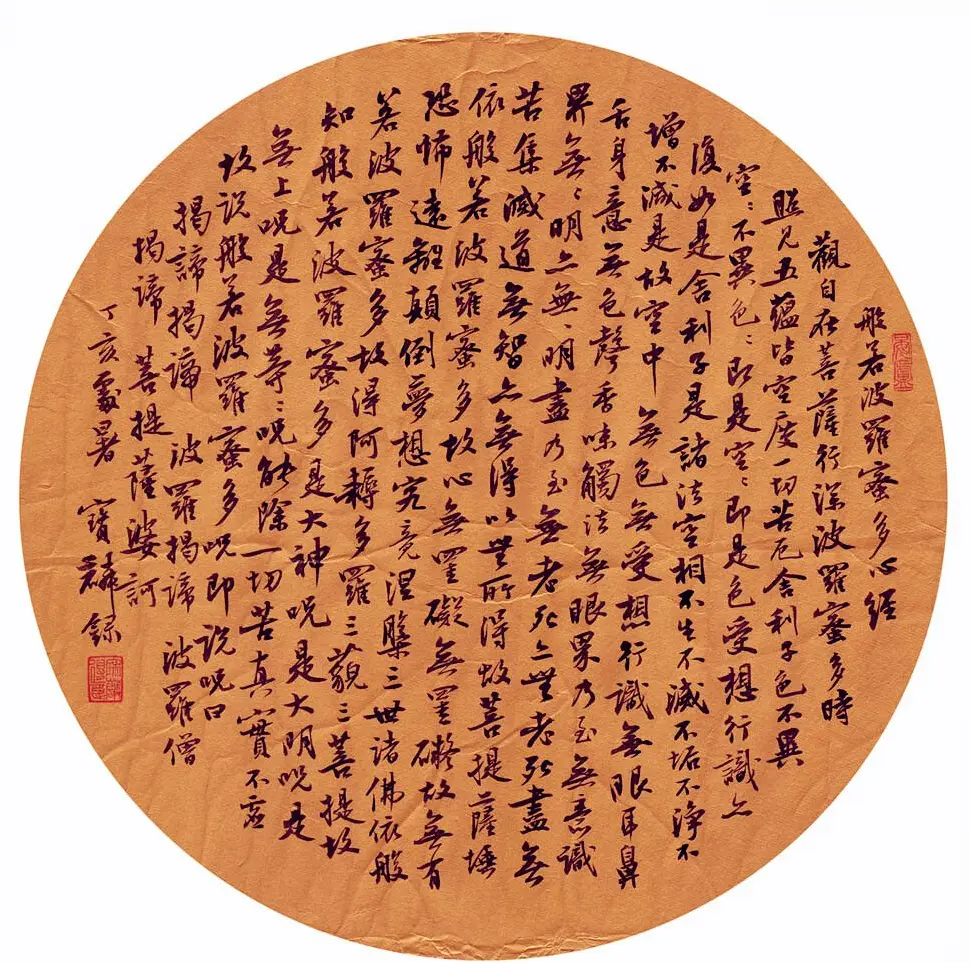 般若波羅蜜多心經
觀自在菩薩行深波羅蜜多時
照見五蘊皆空度一切苦厄舍利子色不異
空〻不異色〻即是空〻即是色受想行識亦
復如是舍利子是諸法空相不生不滅不垢不淨不
增不減是故空中無色無受想行識無眼耳鼻
舌身意無色聲香味觸法無眼界乃至無意識
界無〻明亦無〻明盡乃至無老死亦無老死盡無
苦集滅道無智亦無得以無所得故菩提薩埵
依般若波羅蜜多故心無罣礙無罣礙故無有
恐怖遠離顛倒夢想究竟涅槃三世諸佛依般
若波羅蜜多故得阿耨多羅三藐三菩提故
知般若波羅蜜多是大神呪是大明呪是
無上呪是無等〻呪能除一切苦真實不虛
故說般若波羅蜜多呪即說呪曰
揭諦揭諦 波羅揭諦 波羅僧
揭諦 菩提薩婆訶
丁亥處暑 寶麟錄